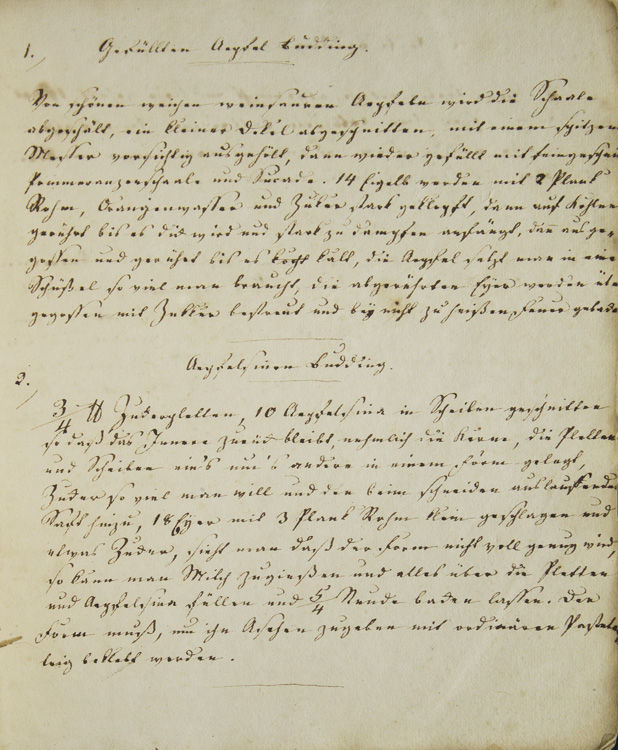 1. Gefüllten Aepfel Budding.
Von schönen weichen weinsauren Aepfeln wird die Schaale
abgeschält, ein kleiner Dekel abgeschnitten, mit einem spitzen
Messer vorsichtig ausgehölt, dann wieder gefüllt mit feingeschn
Pommeranzenschaale und Sucade. 14 Eigelb werden mit 2 Plank
Rohm, Orangenwasser und Zuker stark geklopft, dann auf Kohlen
gerührt bis es dick wird und stark zu dampfen anfängt, dan̄ ausge-
gossen und gerührt bis es kalt, die Aepfel setzt man in eine
Schüssel so viel man braucht, die abgerührten Eyer werden übe
gegossen mit Zukker bestreut und bey nicht zu heißen Feuer gebacke
2. Aepfelsinen Budding.
3/4 ℔ Zuckerpletten, 10 Aepfelsina in Scheiben geschnitten
so daß das Innere zurück bleibt, nehmlich die Kerne, die Pletten
und Scheiben eins um's andere in einem Form gelegt,
Zucker so viel man will und den beim schneiden auslaufenden
Saft hinzu, 18 Eyer mit 3 Plank Rohm klein geschlagen und
etwas Zucker, sieht man daß der Form nicht voll genug wird,
so kann man Milch zugießen und alles über die Pletten
und Aepfelsina füllen und 5/4 Stunde backen lassen. Der
Form muß, um ihn Ansehen zugeben mit ordinären Pasteten
teig beklebt werden.